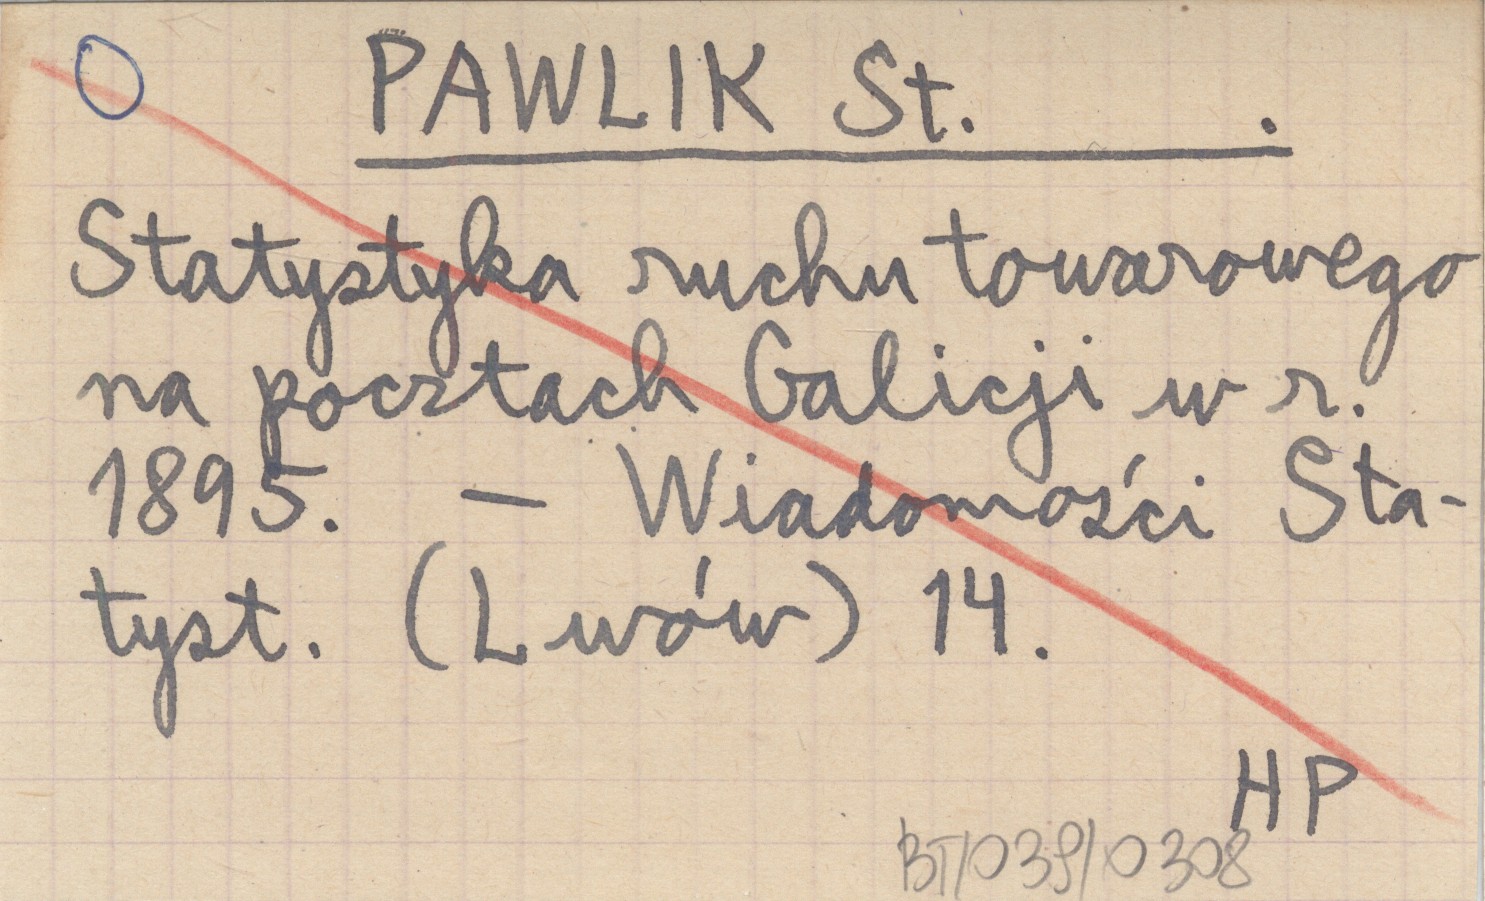 PAWLIK St. .
Statystyka ruchu towarowego
na pocztach Galicji w r.
1895. — Wiadomości Sta-
tyst. (Lwów) 14.
HP
BT/039/0308